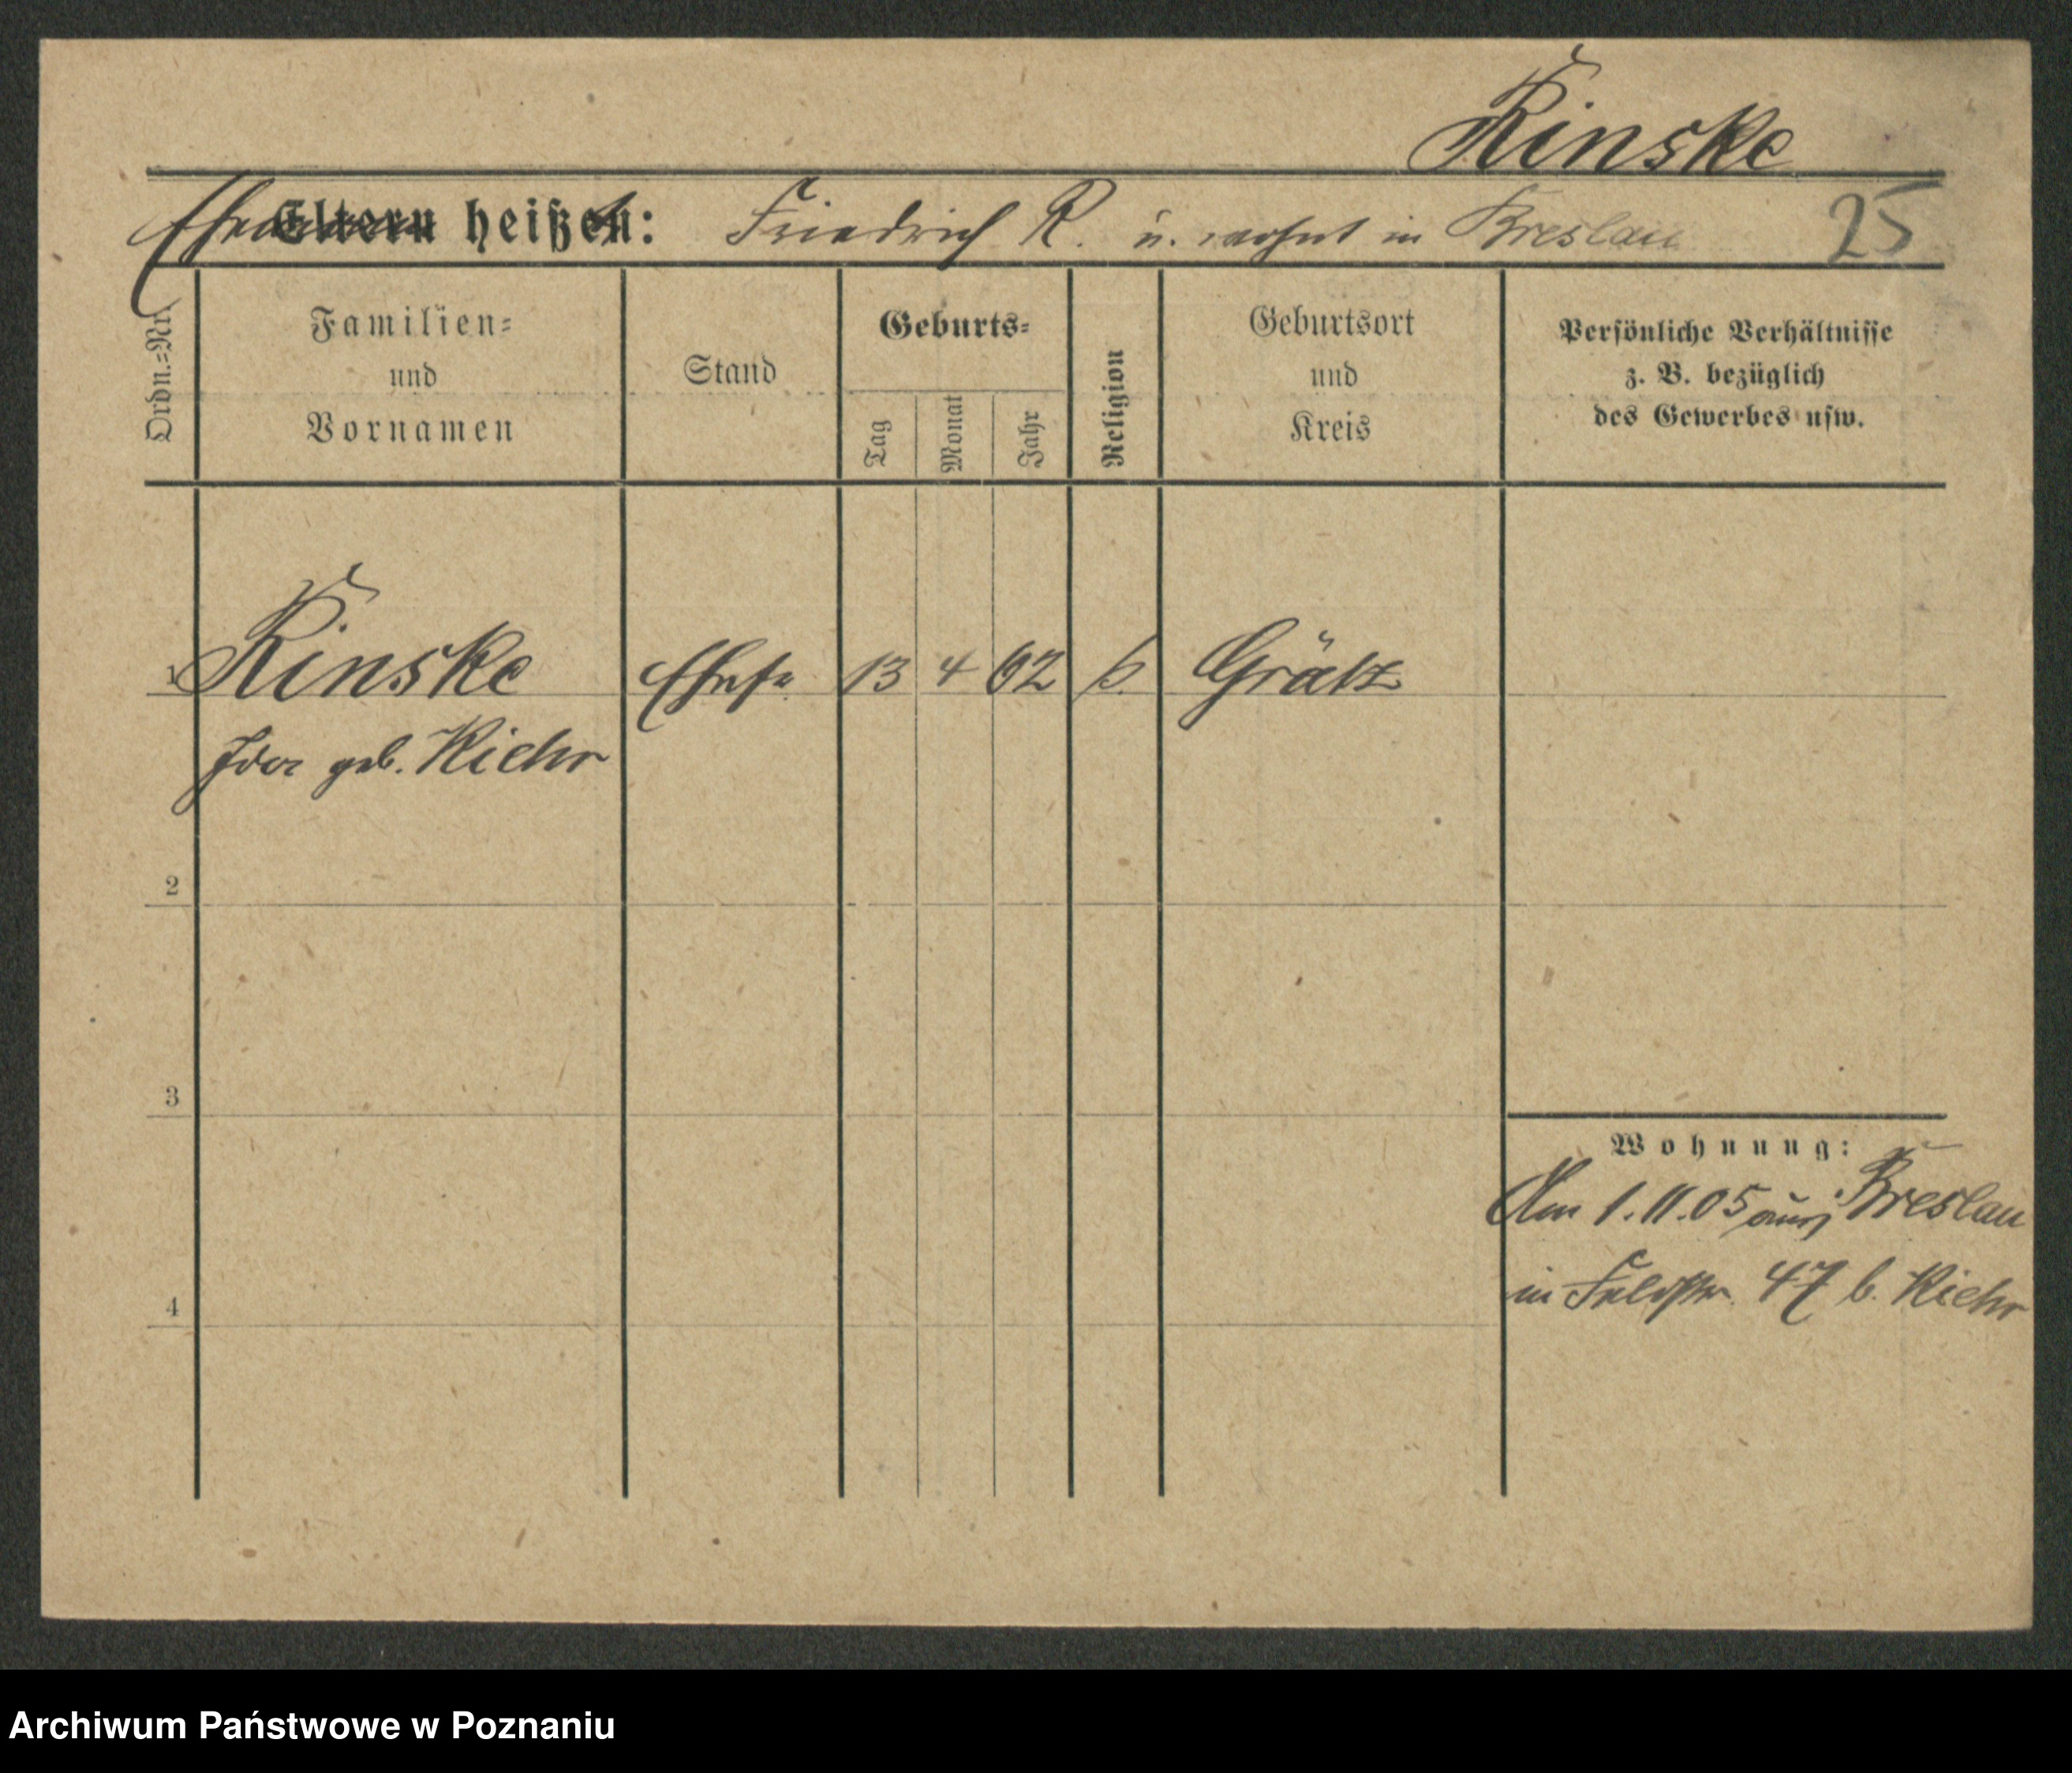 Rinske
Ehemann heißt: Friedrich R. u. wohnt in Breslau 25
Ordn.=Nr.
Familien=
und
Vornamen
Stand
Geburts=
Tag
Monat
Jahr
Religion
Geburtsort
und
Kreis
Persönliche Verhältnisse
z. B. bezüglich
des Gewerbes usw.
1 Rinske Ehefr. 13 4 62 Grätz
Ida geb. Kiehr
2
3
4
Wohnung:
Am 1.11.05 aus Breslau
in Feldstr. 47 b. Kiehr
Archiwum Państwowe w Poznaniu